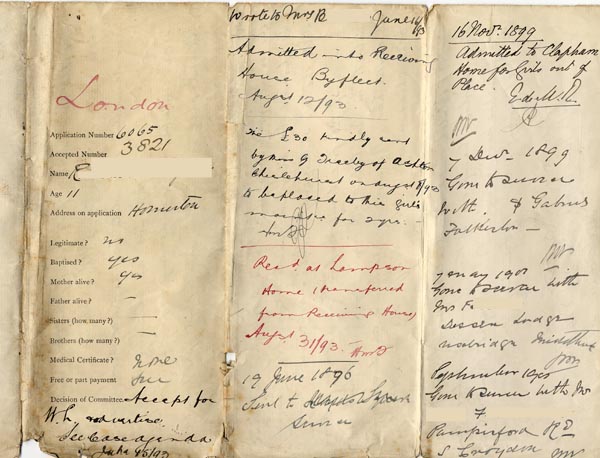 London
Application Number 6065
Accepted Number 3821
Name R
Age 11
Address on application Homerton
Legitimate? no
Baptised? yes
Mother alive? yes
Father alive? –
Sisters (how many?) —
Brothers (how many?) —
Medical Certificate? none
Free or part payment free
Decision of Committee. Accept for
W.H. advertise.
See Case agenda
Wrote to Mrs B June 16/93
Admitted into Receiving
House Byfleet.
Augst 12/93.
The £30 kindly sent
by Miss G
Chislehurst on August 8/93
to be placed to this girl's
for 2 yrs.
Recd. at Lampson
Home (transferred
from Receiving House)
August 31/93.
19 June 1896
Sent to
Service
16 Nov. 1899
Admitted to Clapham
Home for Girls out of
Place.
7 Decr 1899
Gone to service
with
7 May 1901
Gone to service with
Mrs F.
Lodge
September
Gone to service with Mr
F
Pampisford Rd
S. Croydon